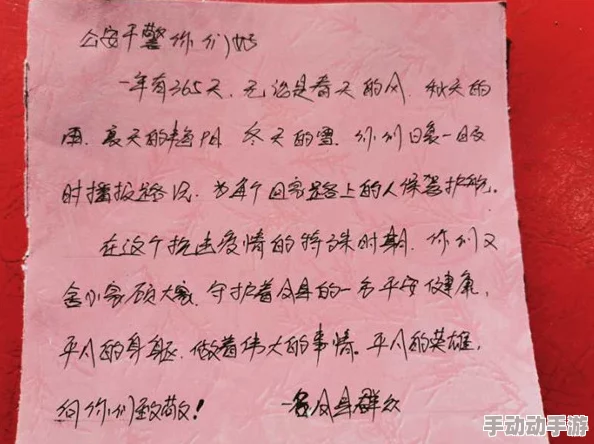 公安干警你们好
一年有365天,无论是春天的风,秋天的
雨,夏天的艳阳,冬天的雪,你们日复一日及
时播报路况,为每个回家路上的人保驾护航。
在这个抗击疫情的特殊时期,你们又
舍小家顾大家,守护着冷县的一方平安健康,
平凡的身躯,做着伟大的事情。平凡的英雄,
向你们致敬!
一名县群众
手动动手游